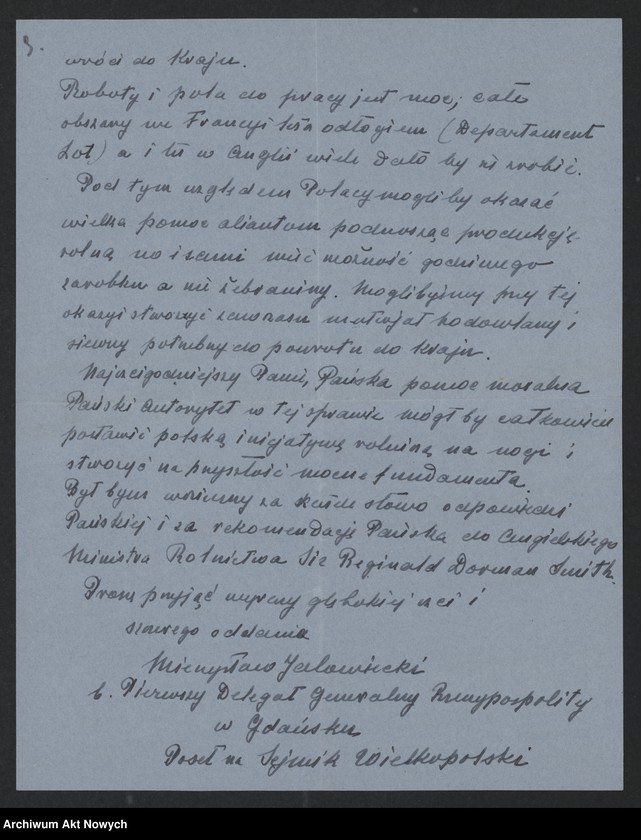 3.
wróci do Kraju.
Roboty i pola do pracy jest moc; całe
obszary we Francji leżą odłogiem (Departament
Lot) a i tu w Anglii wiele dało by się zrobić.
Pod tym względem Polacy mogliby okazać
wielką pomoc aliantom podnosząc produkcję
rolną no i sami mieć możność godziwego
zarobku a nie żebraniny. Moglibyśmy przy tej
okazji stworzyć zawczasu materjał hodowlany i
siewny potrzebny do powrotu do Kraju.
Najczcigodniejszy Panie, Pańska pomoc moralna
Pański Autorytet w tej sprawie mógł by całkowicie
postawić polską inicjatywę rolniczą na nogi i
stworzyć na przyszłość mocne fundamenta.
Był bym wdzięczny za każde słowo odpowiedzi
Pańskiej i za rekomendację Pańską do Angielskiego
Ministra Rolnictwa Sir Reginald Dorman Smith.
Proszę przyjąć wyrazy głębokiej czci i
szczerego oddania
Mieczysław Jałowiecki
b. Pierwszy Delegat Generalny Rzeczypospolitej
w Gdańsku
Poseł na Sejmik Wielkopolski
Archiwum Akt Nowych